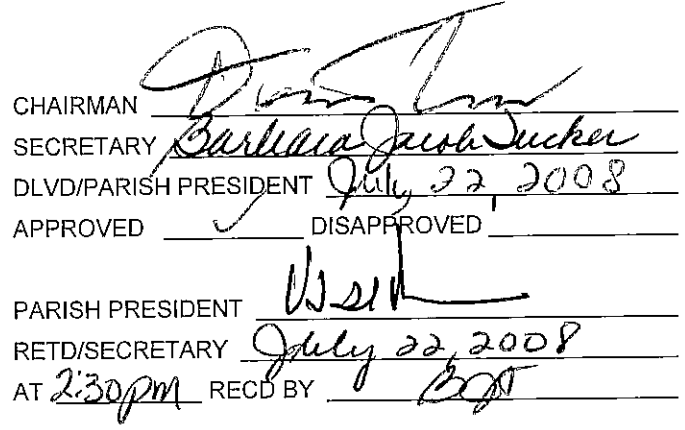 CHAIRMAN
SECRETARY Barbara Jacob Tucker
DLVD/PARISH PRESIDENT July 22, 2008
APPROVED ✓ DISAPPROVED
PARISH PRESIDENT
RETD/SECRETARY July 22, 2008
AT 2:30pm RECD BY BJT